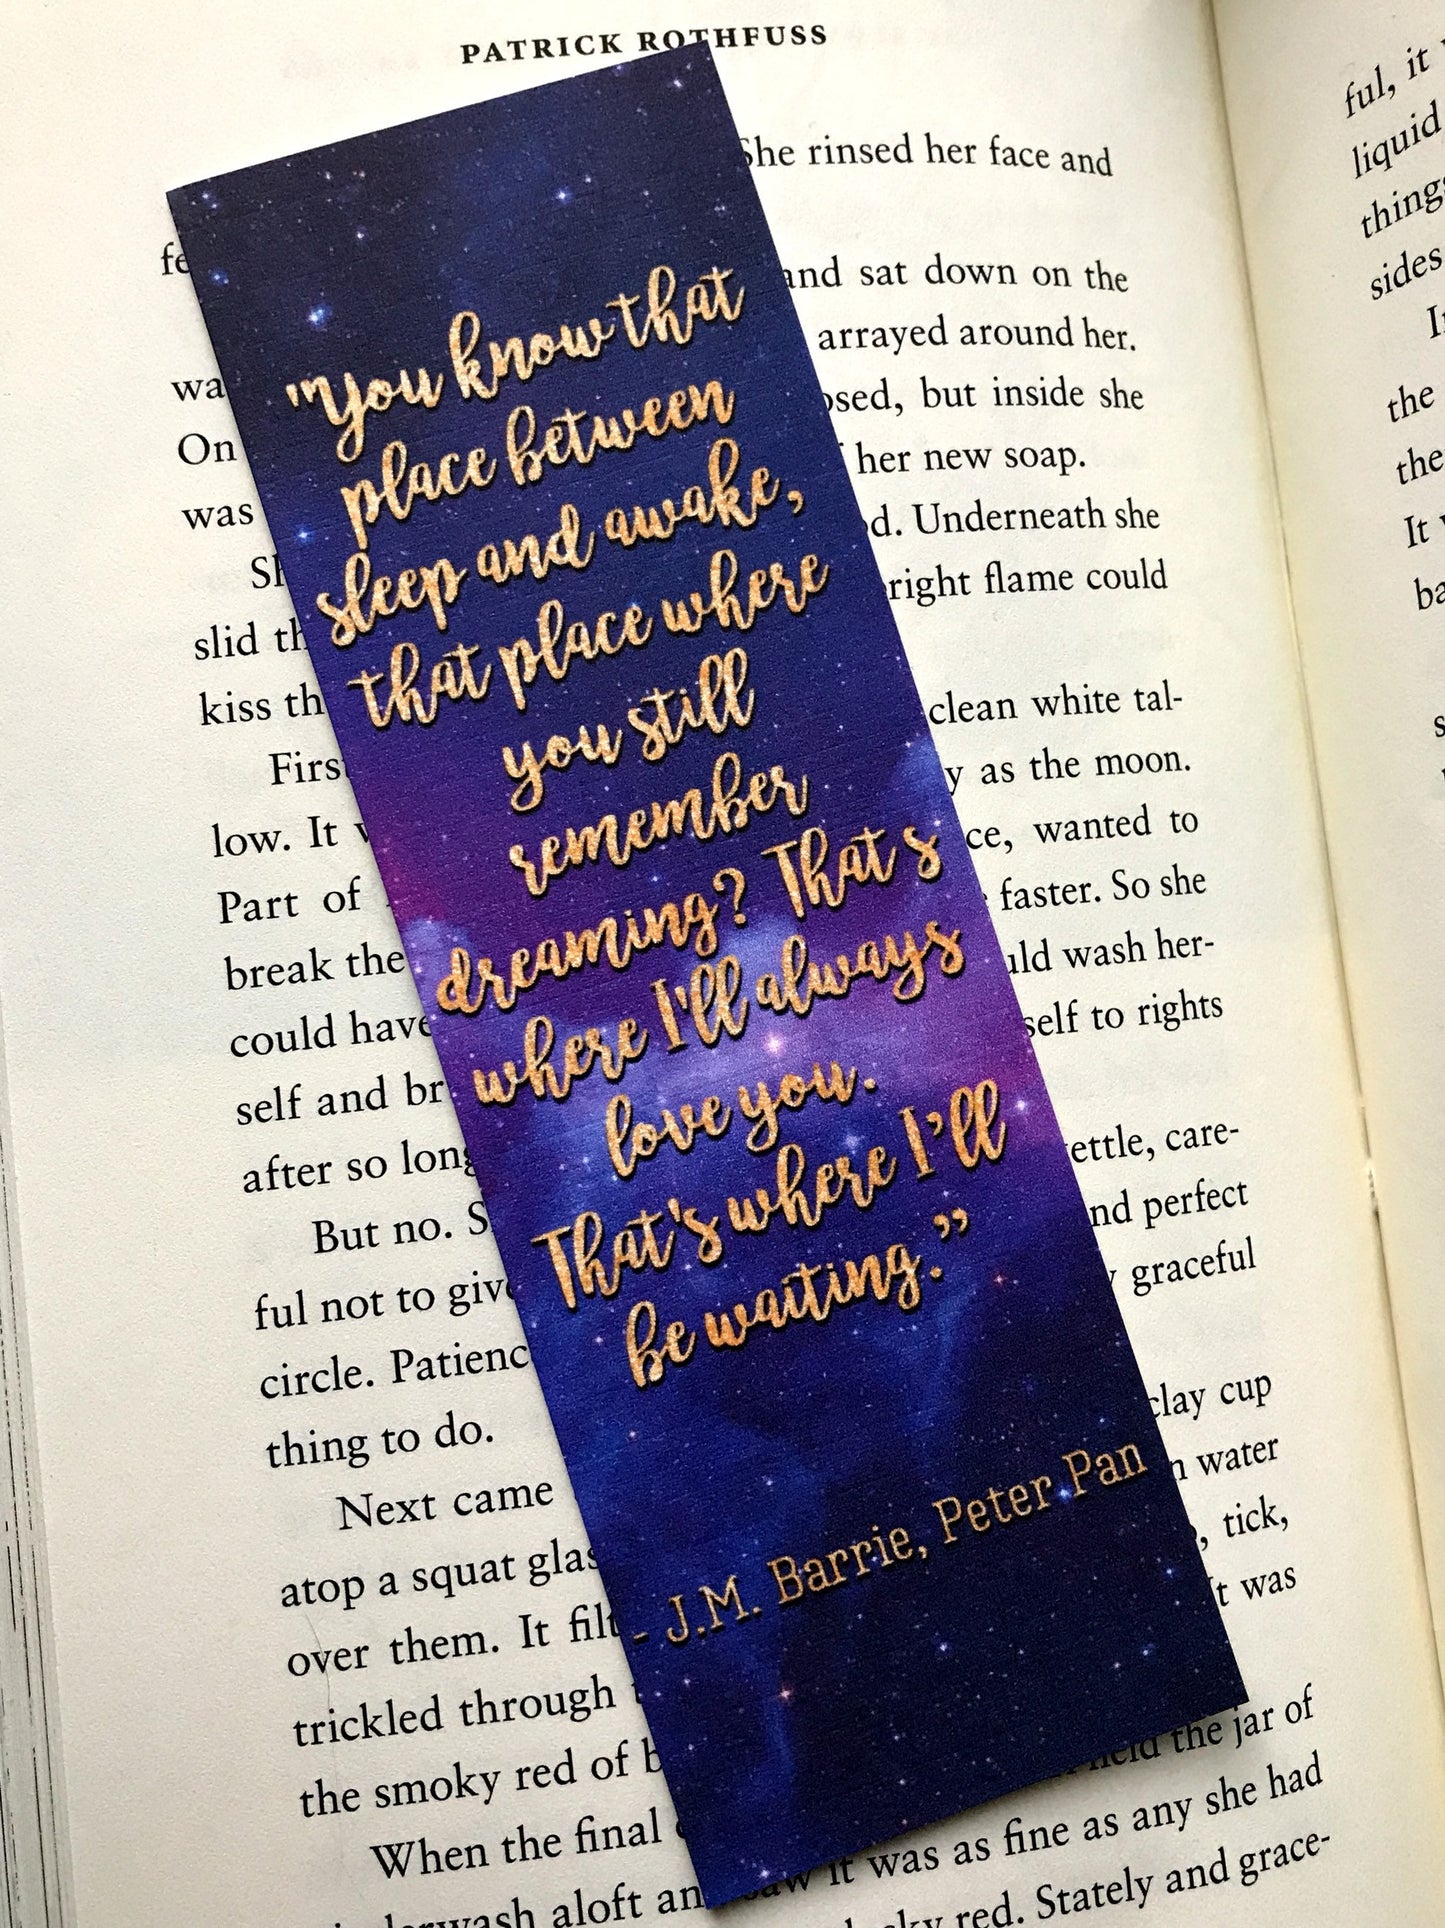 PATRICK ROTHFUSS
She rinsed her face and
and sat down on the
arrayed around her.
On but inside she
was her new soap.
Underneath she
slid flame could
kiss
clean white tal-
First as the moon.
low. It wanted to
Part of faster. So she
break the wash her-
could have self to rights
self and
after so long
But no. care-
ful not to and perfect
circle. graceful
thing to do.
Next came clay cup
atop a squat water
over them. It tick,
trickled through was
the smoky red of the jar of
When the final it was as fine as any she had
aloft red. Stately and grace-
"You know that
place between
sleep and awake,
that place where
you still
remember
dreaming? That's
where I'll always
love you.
That's where I'll
be waiting."
- J.M. Barrie, Peter Pan
ful, it
liquid
things
sides
the
the
It